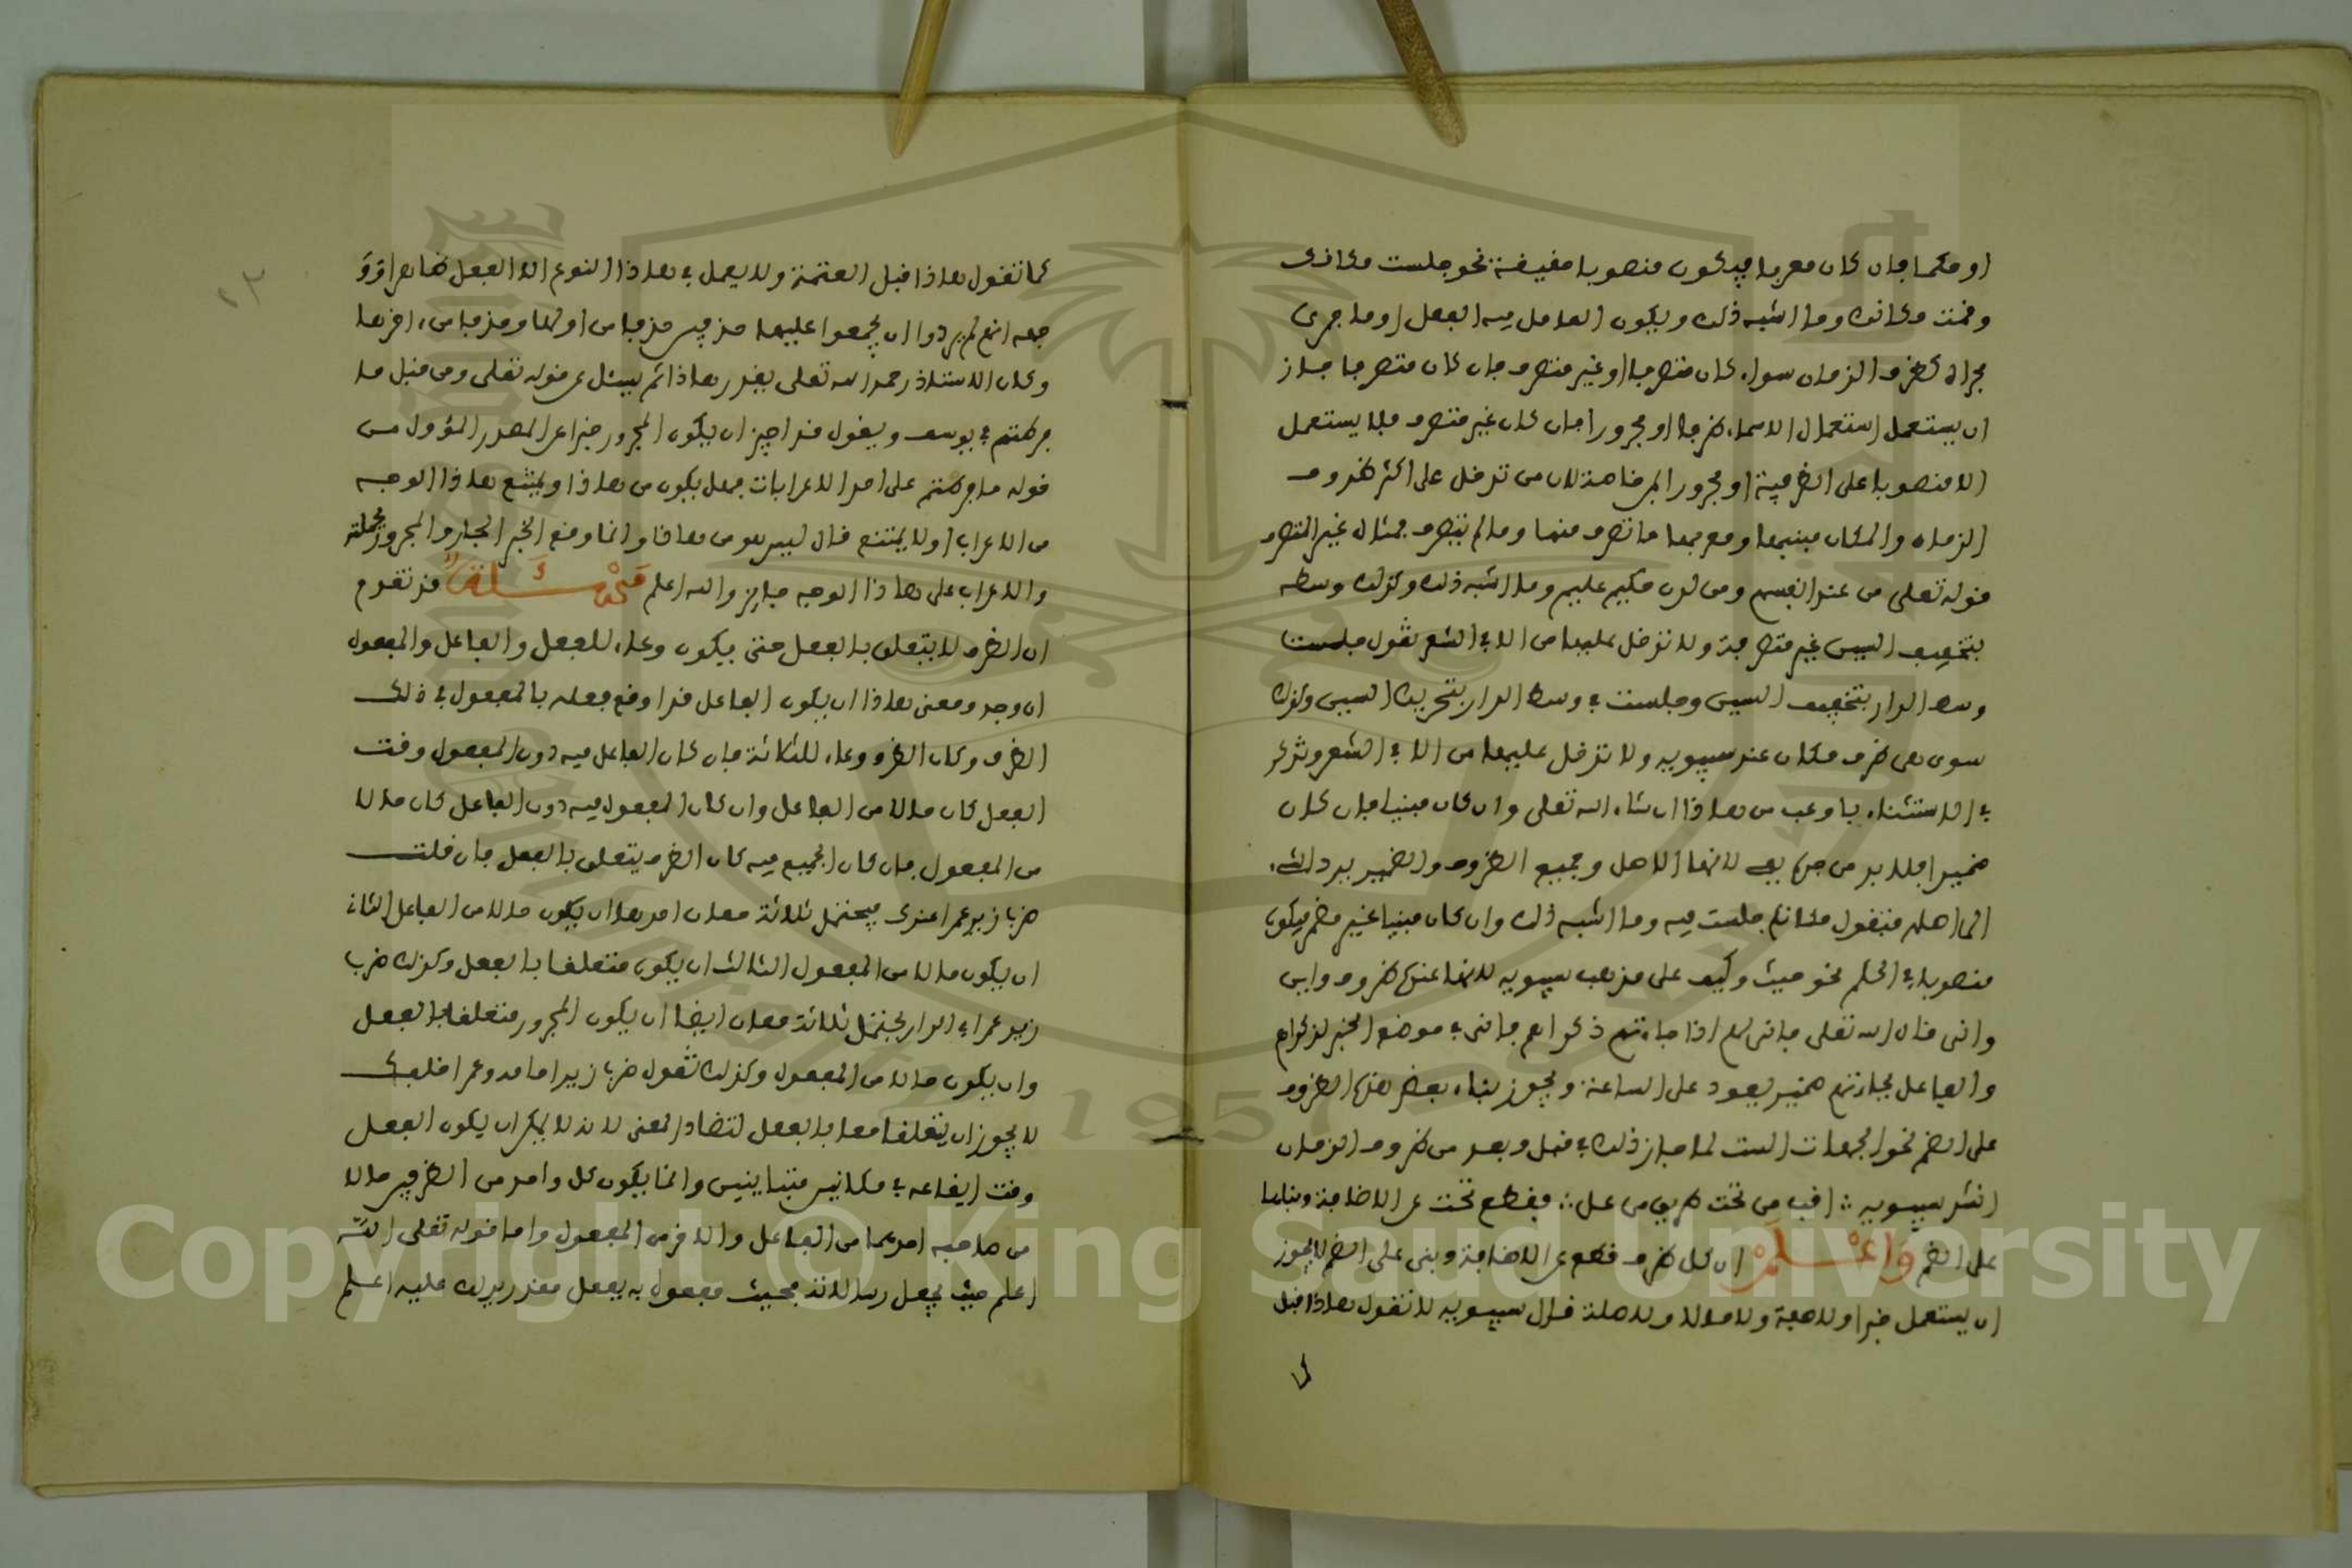 او حكما فان كان معربا فيكون منصوبا حقيقة نحو جلست مكانك
وقمت مكانك وما اشبه ذلك ويكون العامل فيه الفعل او ما جرى
مجراه كظرف الزمان سواء كان متصرفا او غير متصرف فان كان متصرفا جاز
ان يستعمل استعمال الاسماء ظرفا او مجرورا فان كان غير متصرف فلا يستعمل
الا منصوبا على الظرفية او مجرورا بمن خاصة لان من تدخل على اكثر ظروف
الزمان والمكان مبنيها ومعربها ما تصرف منها وما لم يتصرف فمثال غير المتصرف
قوله تعلى من عند انفسهم ومن لدن حكيم عليم وما اشبه ذلك وكذلك وسط
بتخفيف السين غير متصرفة ولا تدخل عليها من الا في الشعر تقول جلست
وسط الدار بتخفيف السين وجلست في وسط الدار بتحريك السين وكذلك
سوى هي ظرف مكان عند سيبويه ولا تدخل عليها من الا في الشعر وتذكر
في الاستثناء باوعب من هاذا ان شاء الله تعلى وان كان مبنيا فان كان
ضميرا فلا بد من حرف في لانها الاصل وجميع الظروف والضمير يرد الشيء
الى اصله فتقول مكانكم جلست فيه وما اشبه ذلك وان كان مبنيا غير مضمر فيكون
منصوبا في الحكم نحو حيث وكيف على مذهب سيبويه لانها عنده ظروف واين
وانى قال الله تعلى فانى لهم اذا جاءتهم ذكراهم فانى في موضع الخبر لذكراهم
والفاعل بجاءتهم ضمير يعود على الساعة ويجوز بناء بعض هذه الظروف
على الضم نحو الجهات الست لما جاز ذلك في قبل وبعد من ظروف الزمان
انشد سيبويه ∴ اقب من تحت عريض من عل ∴ فقطع تحت عن الاضافة وبناها
على الضم واعلم ان كل ظرف قطع عن الاضافة وبنى على الضم لا يجوز
ان يستعمل خبرا ولا صفة ولا حالا ولا صلة قال سيبويه لا تقول هاذا قبل
كما تقول هاذا قبل العتمة ولا يعمل في هاذا النوع الا الفعل ظاهرا او
جهه انهم لم يريدوا ان يجمعوا عليها حذفين حذفا من اولها وحذفا من اخرها
وكان الاستاذ رحمه الله تعلى يقرر هاذا ثم يسئل عن قوله تعلى ومن قبل ما
فرطتم في يوسف ويقول قد اجيز ان يكون المجرور خبرا عن المصدر المؤول من
قوله ما فرطتم على احد الاعرابات فهل يكون من هاذا ويمتنع هاذا الوجه
من الاعراب او لا يمتنع قال ليس هو من هاذا وانما وقع الخبر الجار والمجرور بجملته
والاعراب على هاذا الوجه جايز والله اعلم مسئلة قد تقدم
ان الظرف لا يتعلق بالفعل حتى يكون وعاء للفعل والفاعل والمفعول
ان وجد ومعنى هاذا ان يكون الفاعل قد اوقع فعله بالمفعول في ذلك
الظرف وكان الظرف وعاء للثلاثة فان كان الفاعل فيه دون المفعول وقت
الفعل كان حالا من الفاعل وان كان المفعول فيه دون الفاعل كان حالا
من المفعول فان كان الجميع فيه كان الظرف يتعلق بالفعل فان قلت
ضرب زيد عمرا عندك فيحتمل ثلاثة معان احدها ان يكون حالا من الفاعل الثاني
ان يكون حالا من المفعول الثالث ان يكون متعلقا بالفعل وكذلك ضرب
زيد عمرا في الدار يحتمل ثلاثة معان ايضا ان يكون المجرور متعلقا بالفعل
وان يكون حالا من المفعول وكذلك تقول ضرب زيد امامك وعمرا خلفك
لا يجوز ان يتعلقا معا بالفعل لتضاد المعنى لانه لا يمكن ان يكون الفعل
وقت ايقاعه في مكانين متباينين وانما يكون كل واحد من الظرفين حالا
من صاحبه احدهما من الفاعل والاخر من المفعول واما قوله تعلى الله
اعلم حيث يجعل رسالاته فحيث مفعول به بفعل مقدر يدل عليه اعلم